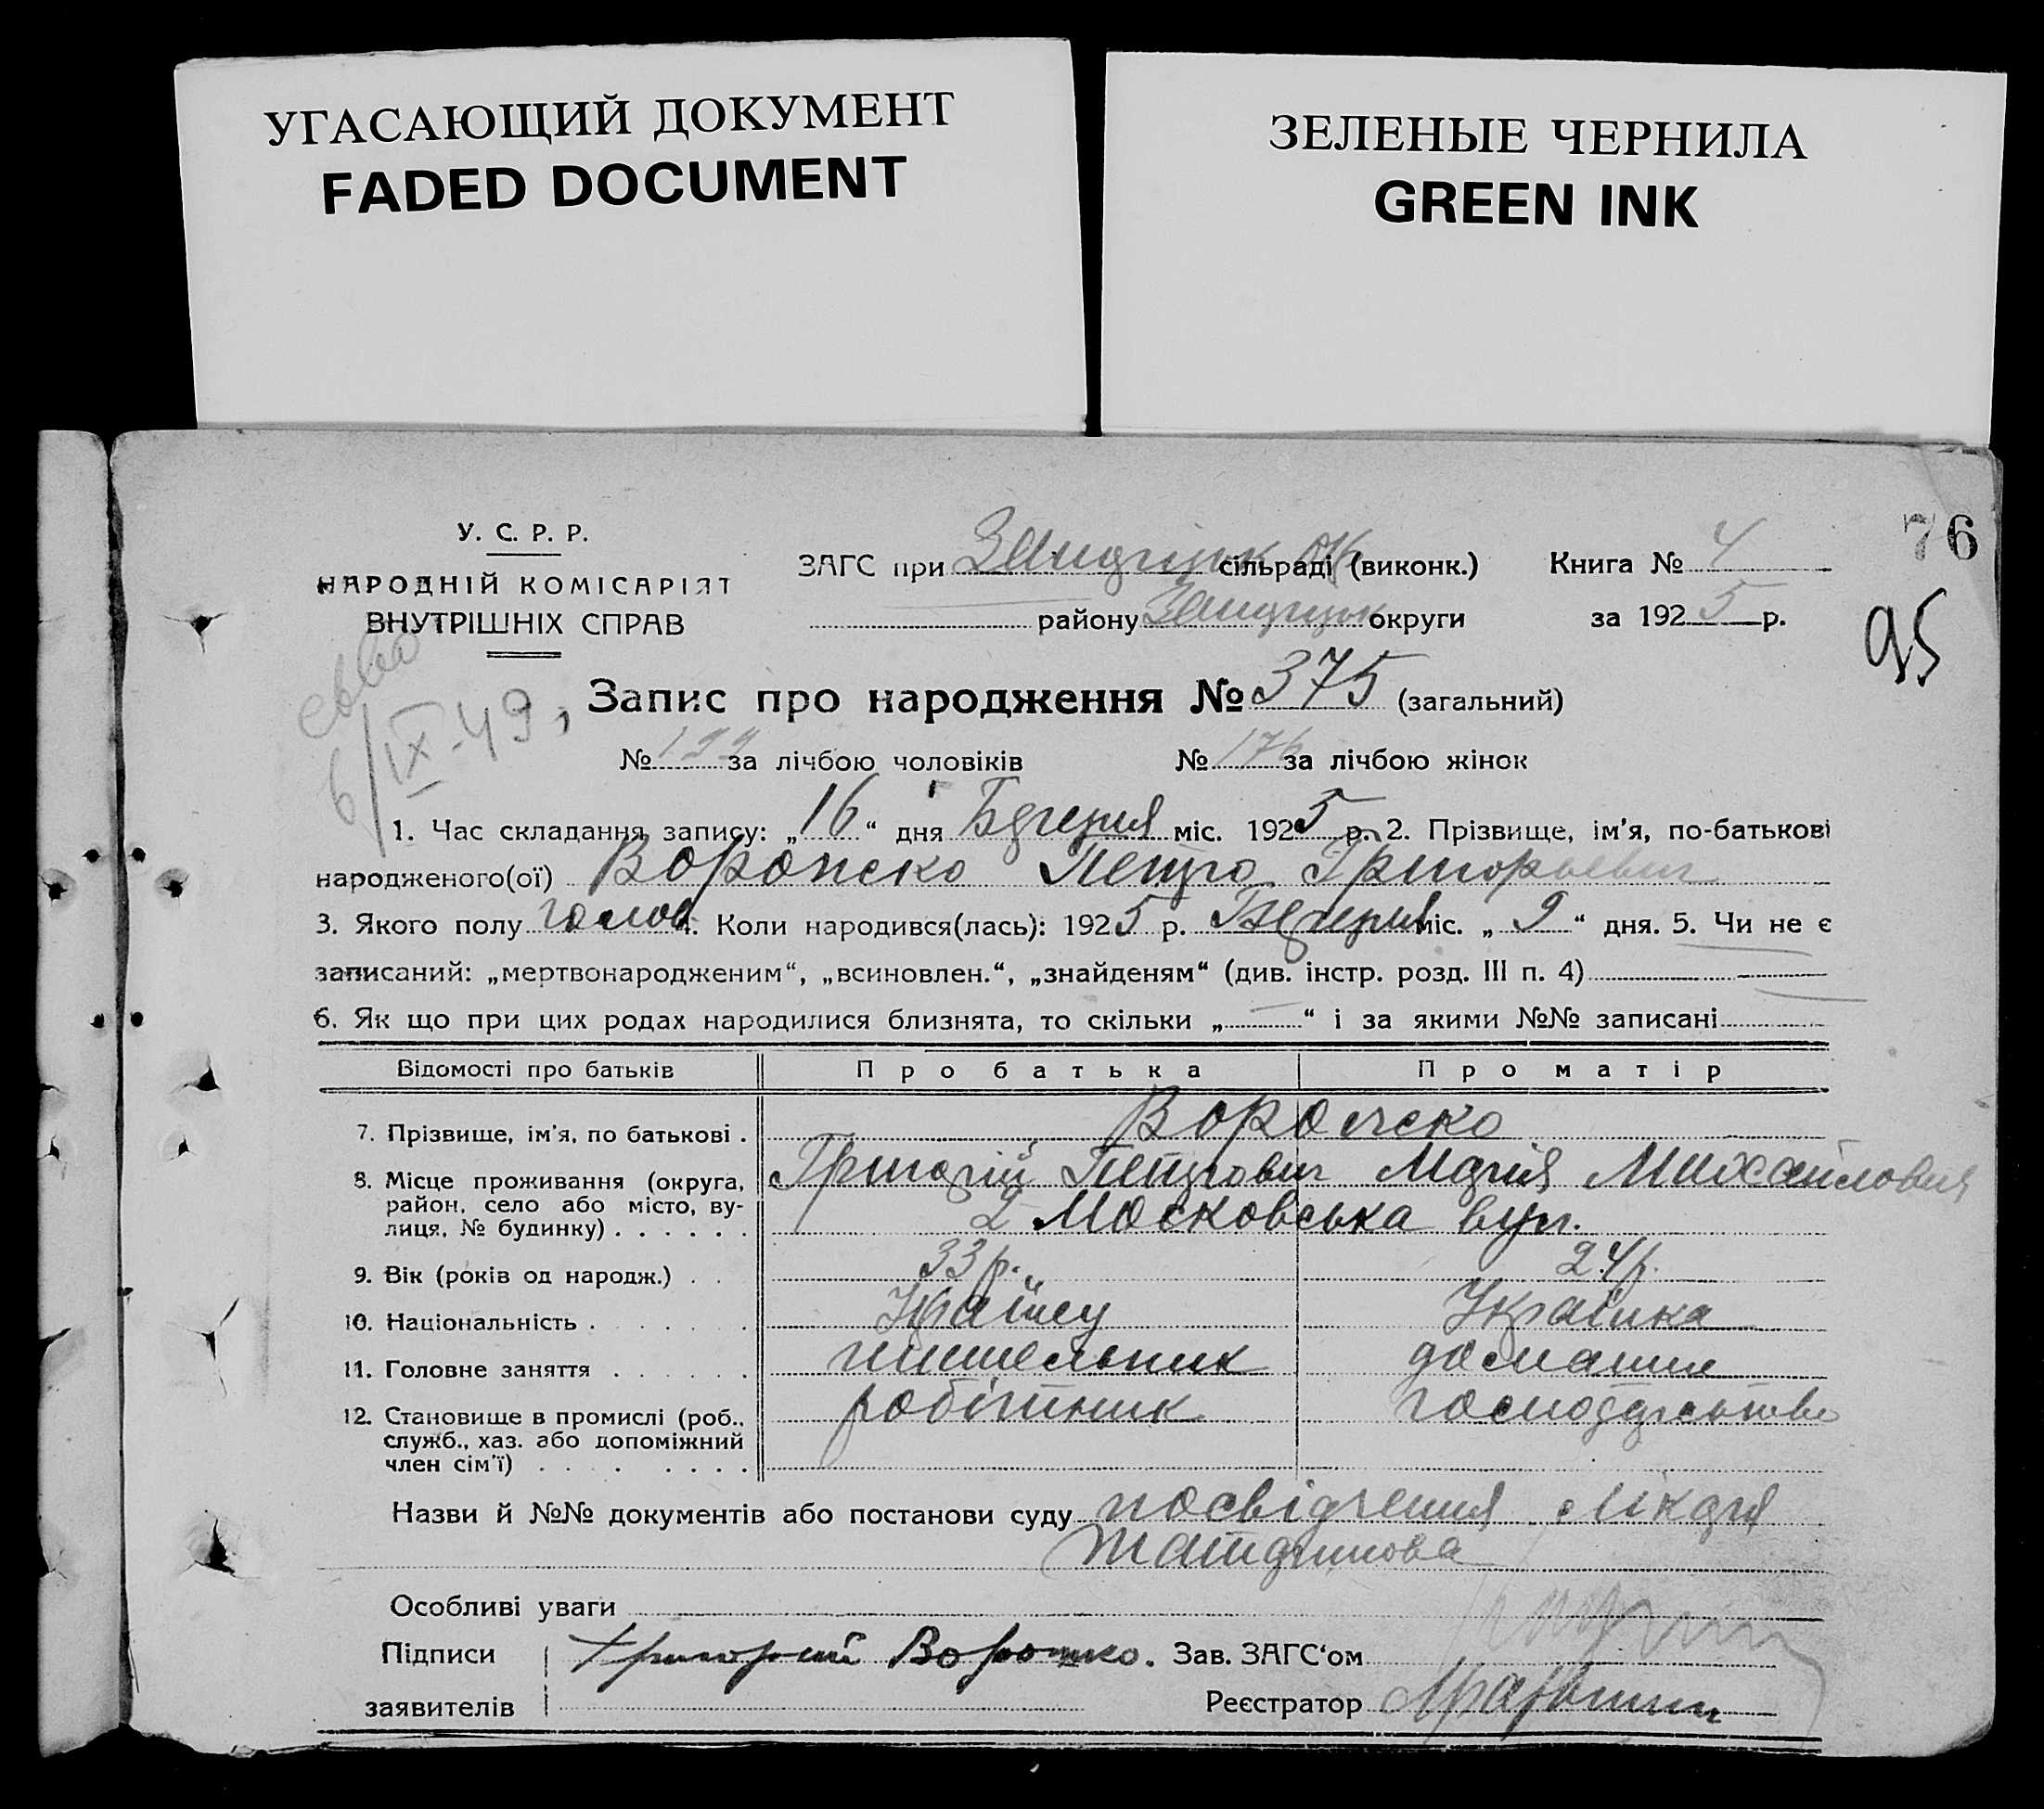 УГАСАЮЩИЙ ДОКУМЕНТ
FADED DOCUMENT
ЗЕЛЕНЫЕ ЧЕРНИЛА
GREEN INK
76
95
У. С. Р. Р.
НАРОДНІЙ КОМІСАРІЯТ
ВНУТРІШНІХ СПРАВ
6/IX-49
ЗАГС при сільраді (виконк.) Книга № 4
району округи за 1925 р.
Запис про народження № 375 (загальний)
№ 199 за лічбою чоловіків № 176 за лічбою жінок
1. Час складання запису: „16“ дня міс. 1925 р. 2. Прізвище, ім'я, по-батькові
народженого(ої) Петро Григорьевич
3. Якого полу чолов 4. Коли народився(лась): 1925 р. міс. „9“ дня. 5. Чи не є
записаний: „мертвонародженим“, „всиновлен.“, „знайденям“ (див. інстр. розд. III п. 4)
6. Як що при цих родах народилися близнята, то скільки „—“ і за якими №№ записані
Відомості про батьків Про батька Про матір
7. Прізвище, ім'я, по батькові .
8. Місце проживання (округа, Григорій Петрович Марія Михайловна
район, село або місто, ву-
лиця, № будинку) . . . . . . 2 Московська вул.
9. Вік (років од народж.) . . 33 р. 24 р.
10. Національність . . . . . . Україн Українка
11. Головне заняття . . . . . . домашнє
12. Становище в промислі (роб., робітник господарство
служб., хаз. або допоміжний
член сім'ї) . . . . . . . .
Назви й №№ документів або постанови суду посвідчення лікаря
Особливі уваги
Підписи Григорий Зав. ЗАГС'ом
заявителів Реєстратор